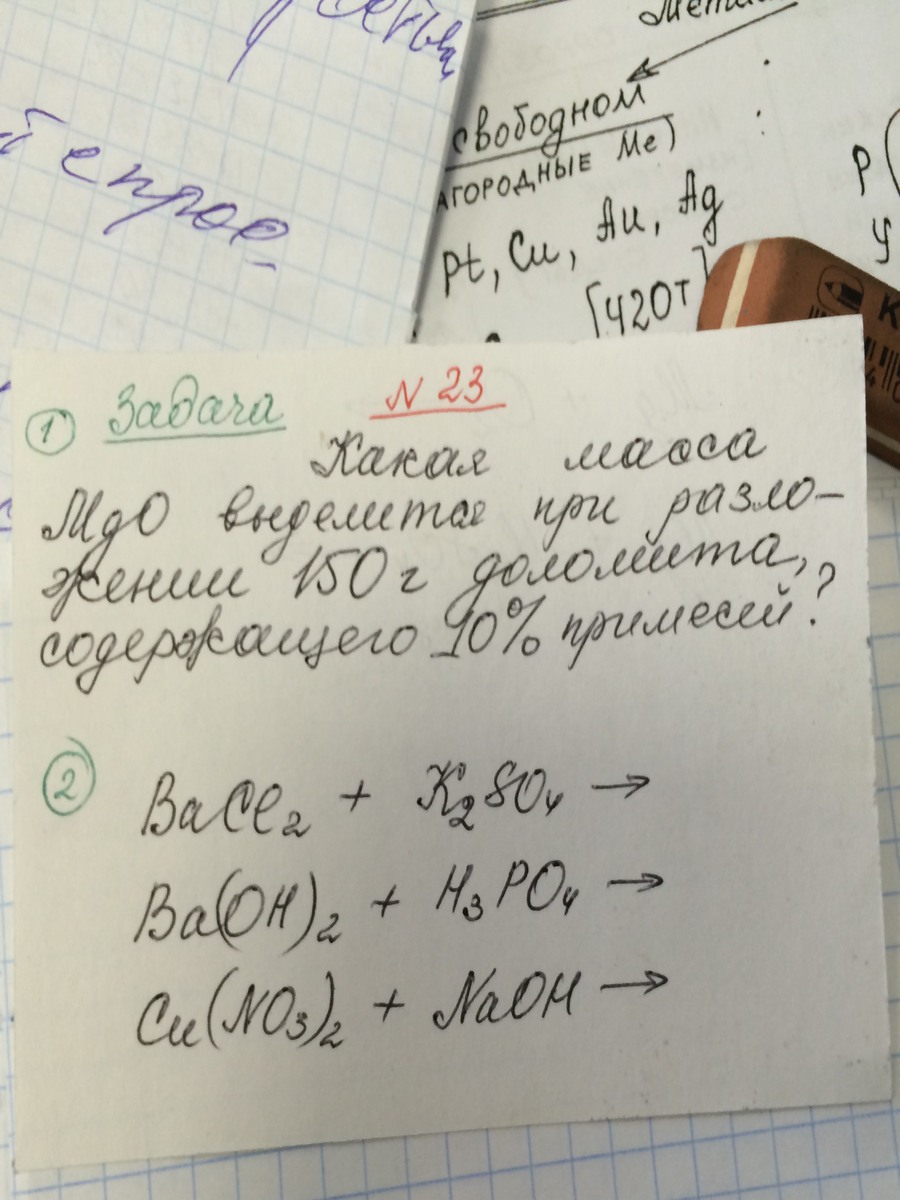 свободном
АГОРОДНЫЕ Ме)
Pt, Cu, Au, Ag
[420т]
① Задача N 23
Какая масса
MgO выделится при разло-
жении 150 г доломита,
содержащего 10% примесей?
②
BaCl₂ + K₂SO₄ →
Ba(OH)₂ + H₃PO₄ →
Cu(NO₃)₂ + NaOH →